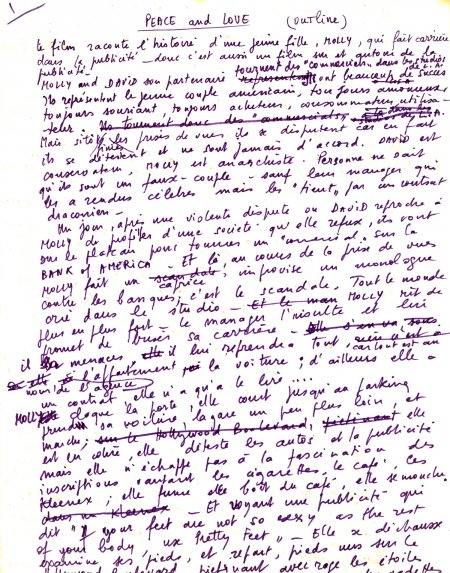 1
PEACE and LOVE (outline)
Le film raconte l'histoire d'une jeune fille, MOLLY, qui fait carrière
dans la publicité - donc c'est aussi un film sur et autour de la
publicité -
MOLLY and DAVID son partenaire tournent des "commercials" dans les studios de L.A.
Ils représentent ont beaucoup de succès
Ils représentent le jeune couple américain, toujours amoureux
toujours souriant toujours acheteur, consommateur, utilisa-
teur. Ils tournent donc des "commercials"
Mais sitôt finies les prises de vues, ils se disputent car en fait
ils se détestent et ne sont jamais d'accord. DAVID est
conservateur, MOLLY est anarchiste. Personne ne sait
qu'ils sont un faux-couple - sauf leur manager qui
les a rendus célèbres mais les "tient" par un contrat
draconien -
Un jour, après une violente dispute ou DAVID reproche à
MOLLY de profiter d'une société que elle refuse, ils vont
sur le plateau pour tourner un "commercial" sur la
BANK of AMERICA - Et là, au cours de la prise de vues
MOLLY fait un scandale caprice, improvise un monologue
contre les banques, c'est le scandale. Tout le monde
crie dans le studio - Et le man MOLLY rit de
plus en plus fort - le manager l'insulte et lui
promet de briser sa carrière - Elle s'en va sous
il menaces, il lui reprendra tout, car tout est au
nom de l'agence l'appartement, la voiture ; d'ailleurs elle a
un contrat, elle n'a qu'à le lire ....
MOLLY claque la porte, elle court jusqu'au parking
prend sa voiture, la gare un peu plus loin, et
marche, sur le Hollywood Boulevard, elle
est en colère, elle déteste les autos et la publicité
mais elle n'échappe pas à la fascination des
inscriptions vantant les cigarettes, le café, les
Kleenex ; elle fume, elle boit du café, elle se mouche
dans un Kleenex - Et voyant une publicité qui
dit "if your feet are not so sexy as the rest
of your body, use Pretty Feet" - Elle se déchausse
examine ses pieds, et repart, pieds nus sur le
Hollywood Boulevard, piétinant avec rage les étoiles